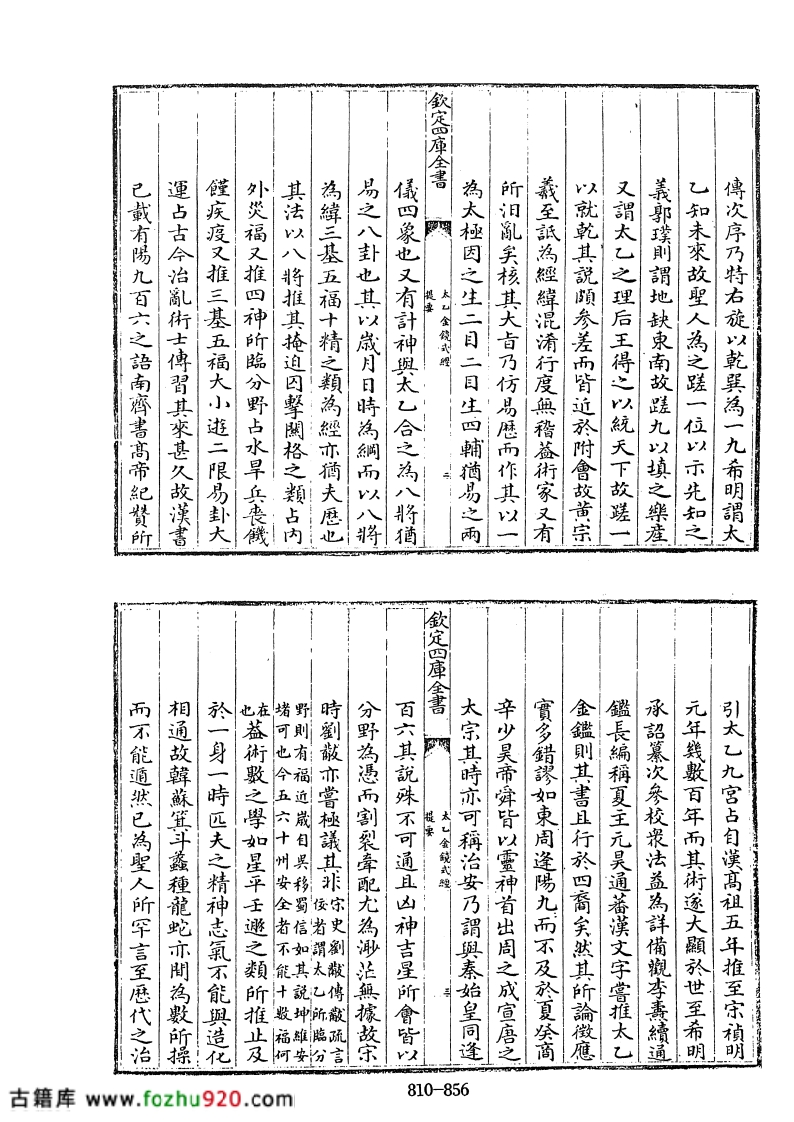 傳次序乃特右旋以乾巽為一九希明謂太
乙知未來故聖人為之蹉一位以示先知之
義郭璞則謂地缺東南故蹉九以填之樂產
又謂太乙之理后王得之以統天下故蹉一
以就乾其說頗參差而皆近於附會故黃宗
羲至詆為經緯混淆行度無稽蓋術家又有
所汨亂矣核其大旨乃仿易歷而作其以一
為太極因之生二目二目生四輔猶易之兩
欽定四庫全書
太乙金鏡式經
提要
二
儀四象也又有計神與太乙合之為八將猶
易之八卦也其以歲月日時為綱而以八將
為緯三基五福十精之類為經亦猶夫歷也
其法以八將推其掩迫囚擊關格之類占內
外災福又推四神所臨分野占水旱兵喪饑
饉疾疫又推三基五福大小遊二限易卦大
運占古今治亂術士傳習其來甚久故漢書
已載有陽九百六之語南齊書髙帝紀贊所
引太乙九宮占自漢髙祖五年推至宋禎明
元年幾數百年而其術遂大顯於世至希明
承詔纂次參校衆法益為詳備觀李燾續通
鑑長編稱夏主元昊通蕃漢文字嘗推太乙
金鑑則其書且行於四裔矣然其所論徵應
實多錯謬如東周逢陽九而不及於夏癸商
辛少昊帝舜皆以靈神首出周之成宣唐之
太宗其時亦可稱治安乃謂與秦始皇同逢
欽定四庫全書
太乙金鏡式經
提要
三
百六其說殊不可通且凶神吉星所會皆以
分野為憑而割裂牽配尤為渺茫無據故宋
時劉敞亦嘗極議其非宋史劉敞傳敞疏言
佞者謂太乙所臨分
野則有福近歲自吳移蜀信如其說坤維安
堵可也今五六十州安全者不能十數福何
在
也蓋術數之學如星平壬遯之類所推止及
於一身一時匹夫之精神志氣不能與造化
相通故韓蘇箕斗蠡種龍蛇亦間為數所操
而不能遁然已為聖人所罕言至歷代之治
810-856
古籍库 www.fozhu920.com